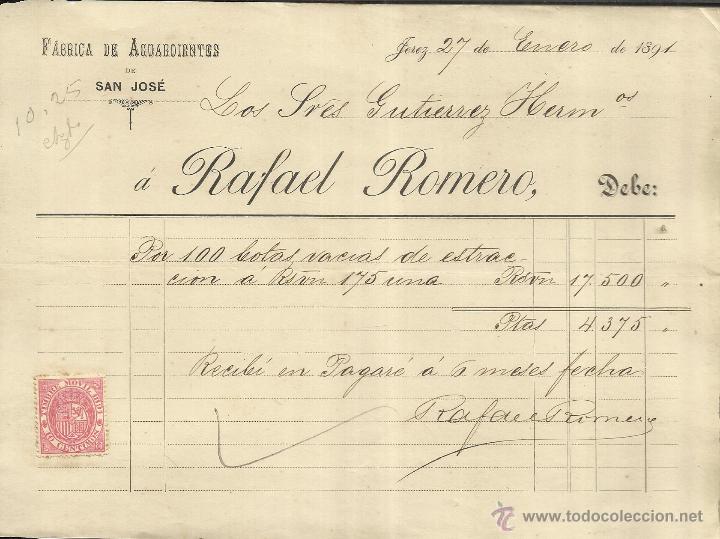 FÁBRICA DE AGUARDIENTES
DE
SAN JOSÉ
Jerez 27 de Enero de 1891
10,25
Los Sres Gutierrez Herm os
á Rafael Romero, Debe:
Por 100 botas vacias de estrac-
cion á Rsvn 175 una Rsvn 17.500 "
Ptas 4.375 "
Recibí en Pagaré á 6 meses fecha
Rafael Romero
TIMBRE MOVIL 1891
10 CENTIMOS
www.todocoleccion.net